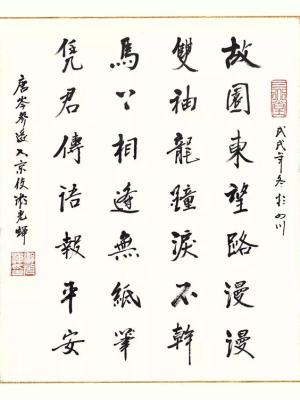 戊戌年冬於四川
故園東望路漫漫
雙袖龍蹱淚不幹
馬上相逢無紙筆
凭君傳語報平安
唐岑參逢入京使 光輝